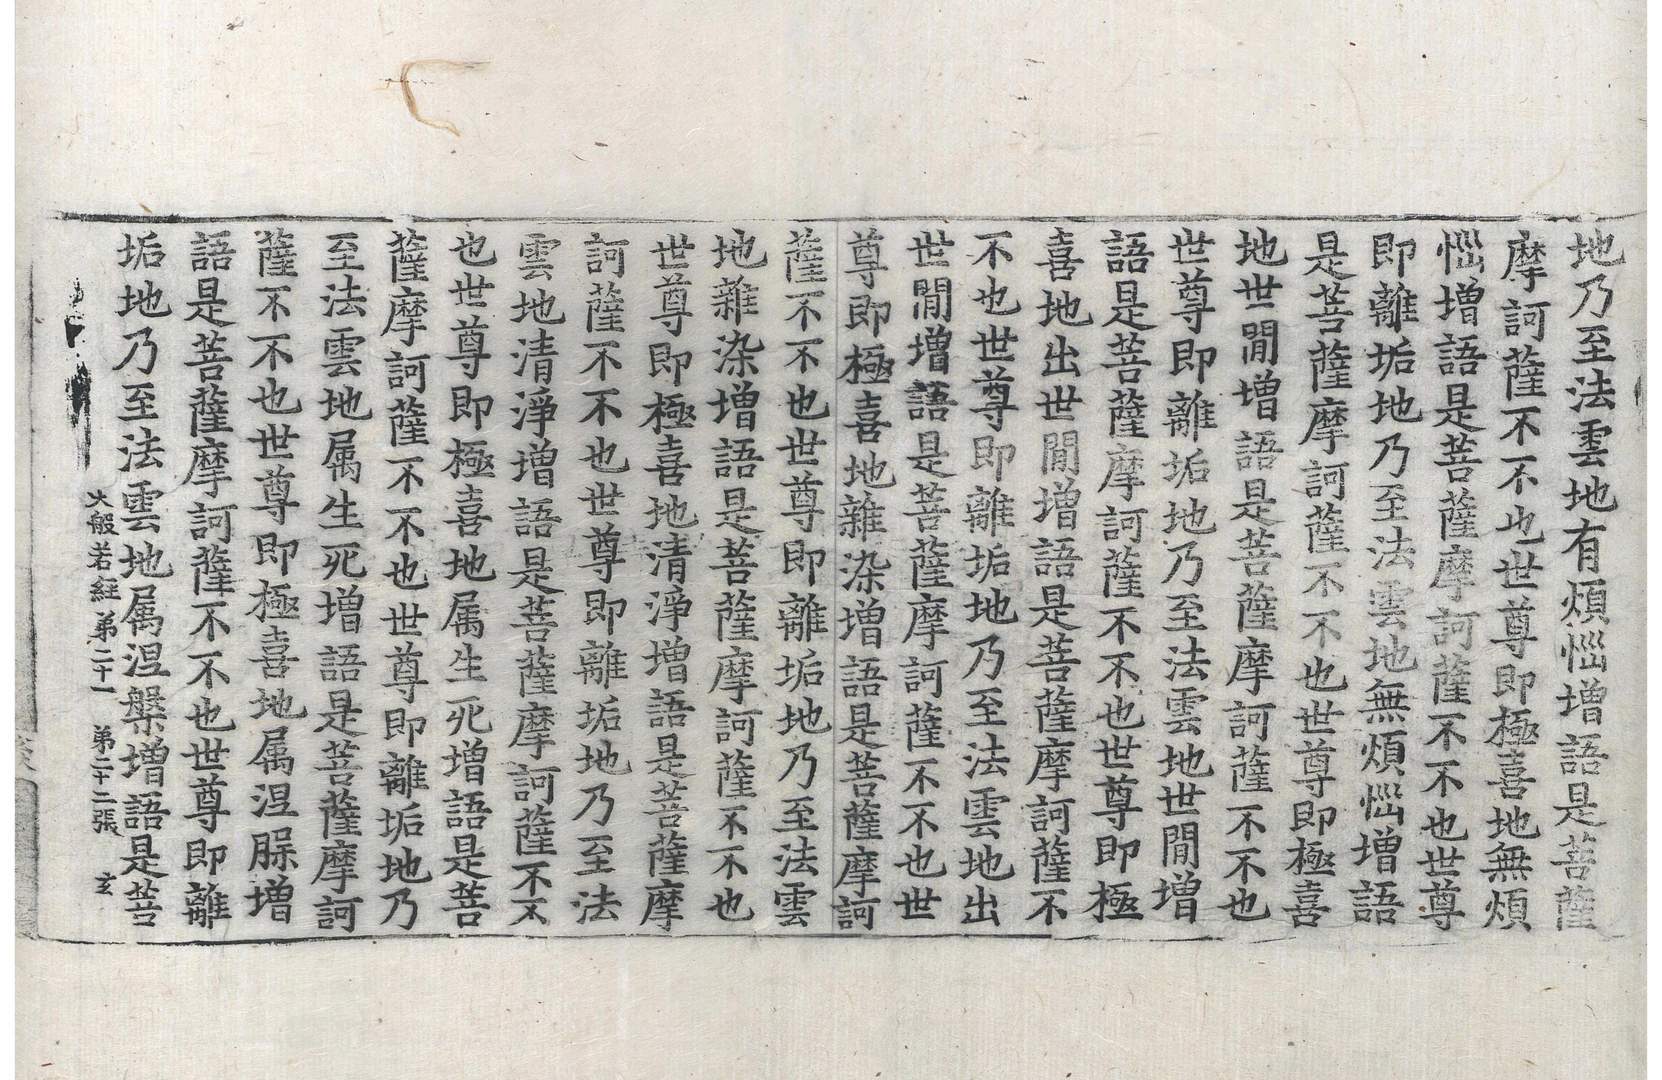 地乃至法雲地有煩惱增語是菩薩
摩訶薩不不也世尊即極喜地無煩
惱增語是菩薩摩訶薩不不也世尊
即離垢地乃至法雲地無煩惱增語
是菩薩摩訶薩不不也世尊即極喜
地世閒增語是菩薩摩訶薩不不也
世尊即離垢地乃至法雲地世閒增
語是菩薩摩訶薩不不也世尊即極
喜地出世閒增語是菩薩摩訶薩不
不也世尊即離垢地乃至法雲地出
世閒增語是菩薩摩訶薩不不也世
尊即極喜地雜染增語是菩薩摩訶
薩不不也世尊即離垢地乃至法雲
地雜染增語是菩薩摩訶薩不不也
世尊即極喜地清淨增語是菩薩摩
訶薩不不也世尊即離垢地乃至法
雲地清淨增語是菩薩摩訶薩不不
也世尊即極喜地属生死增語是菩
薩摩訶薩不不也世尊即離垢地乃
至法雲地属生死增語是菩薩摩訶
薩不不也世尊即極喜地属涅槃增
語是菩薩摩訶薩不不也世尊即離
垢地乃至法雲地属涅槃增語是菩
大般若經弟二十一 弟二十二張 玄